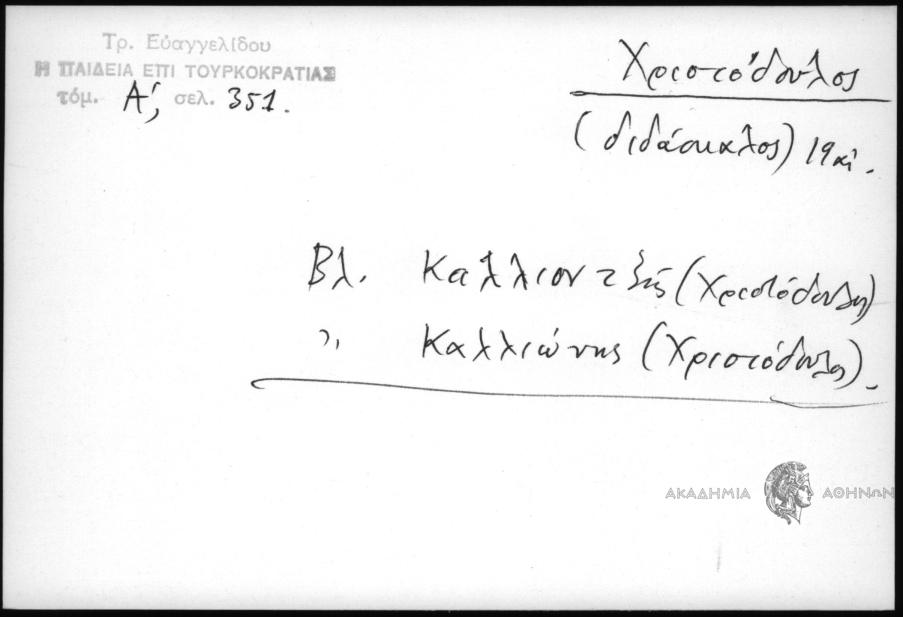 Τρ. Εὐαγγελίδου
Η ΠΑΙΔΕΙΑ ΕΠΙ ΤΟΥΡΚΟΚΡΑΤΙΑΣ
τόμ. Α', σελ. 351.
Χριστόδουλος
(διδάσκαλος) 19 αἰ.
Βλ. Καλλιοντζῆς (Χριστόδουλος)
,, Καλλιώνης (Χριστόδουλος).
ΑΚΑΔΗΜΙΑ ΑΘΗΝΩΝ